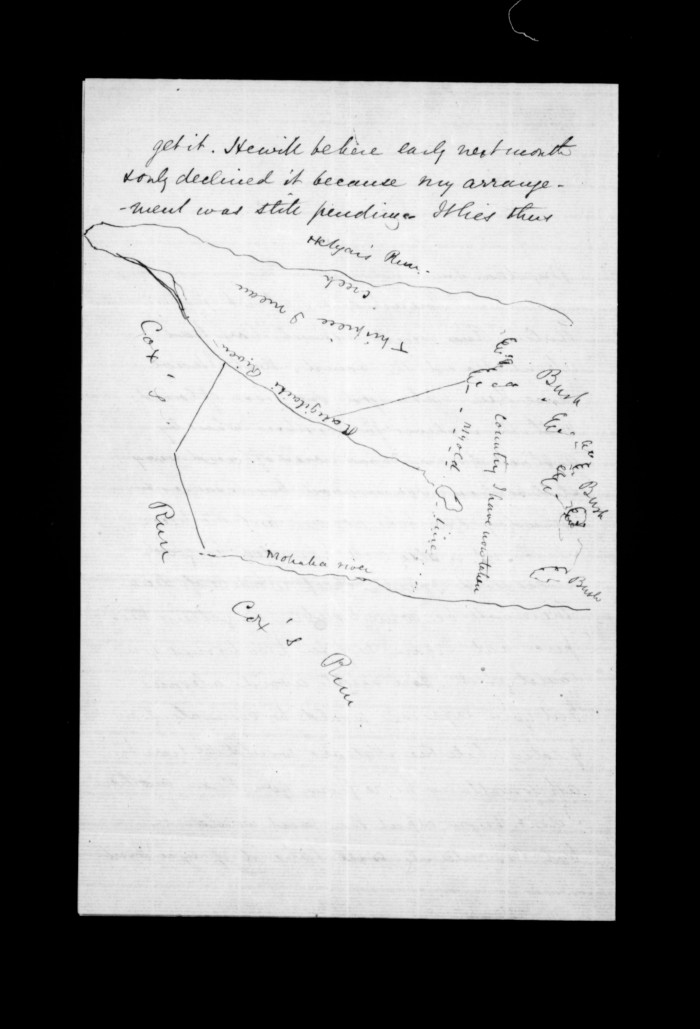 get it. He will be here early next month
& only declined it because my arrange-
-ment was still pending. It lies thus
Run.
creek
This piece I mean
Cox's
Run
River
Bush
Country I have now taken
My old
line
Bush
Bush
Mohaka river
Cox's Run